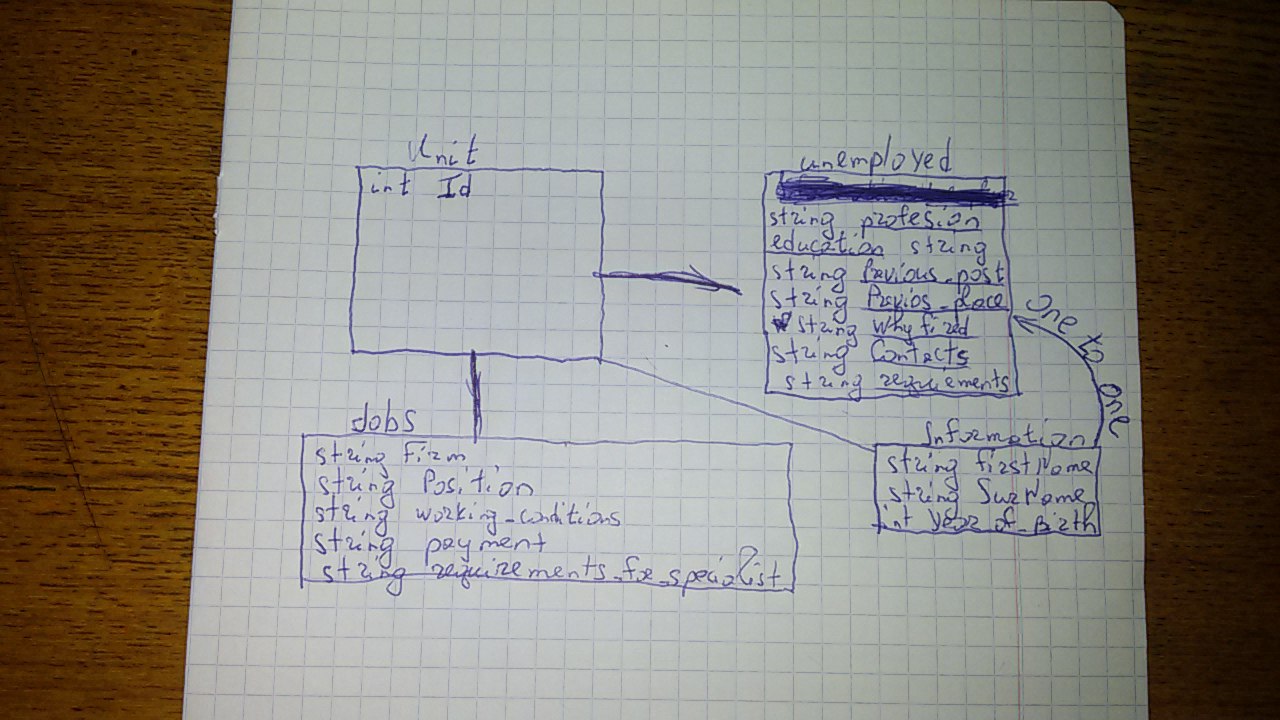 Unit
int Id
unemployed
string profesion
education string
string Pevious_post
string Pevios_place
string Why fired
string Contacts
string requiements
one to one
Jobs
string Firm
string Position
string working_conditions
string payment
string requirements_for_specialist
Information
string firstName
string SurName
int Year_of_Birth